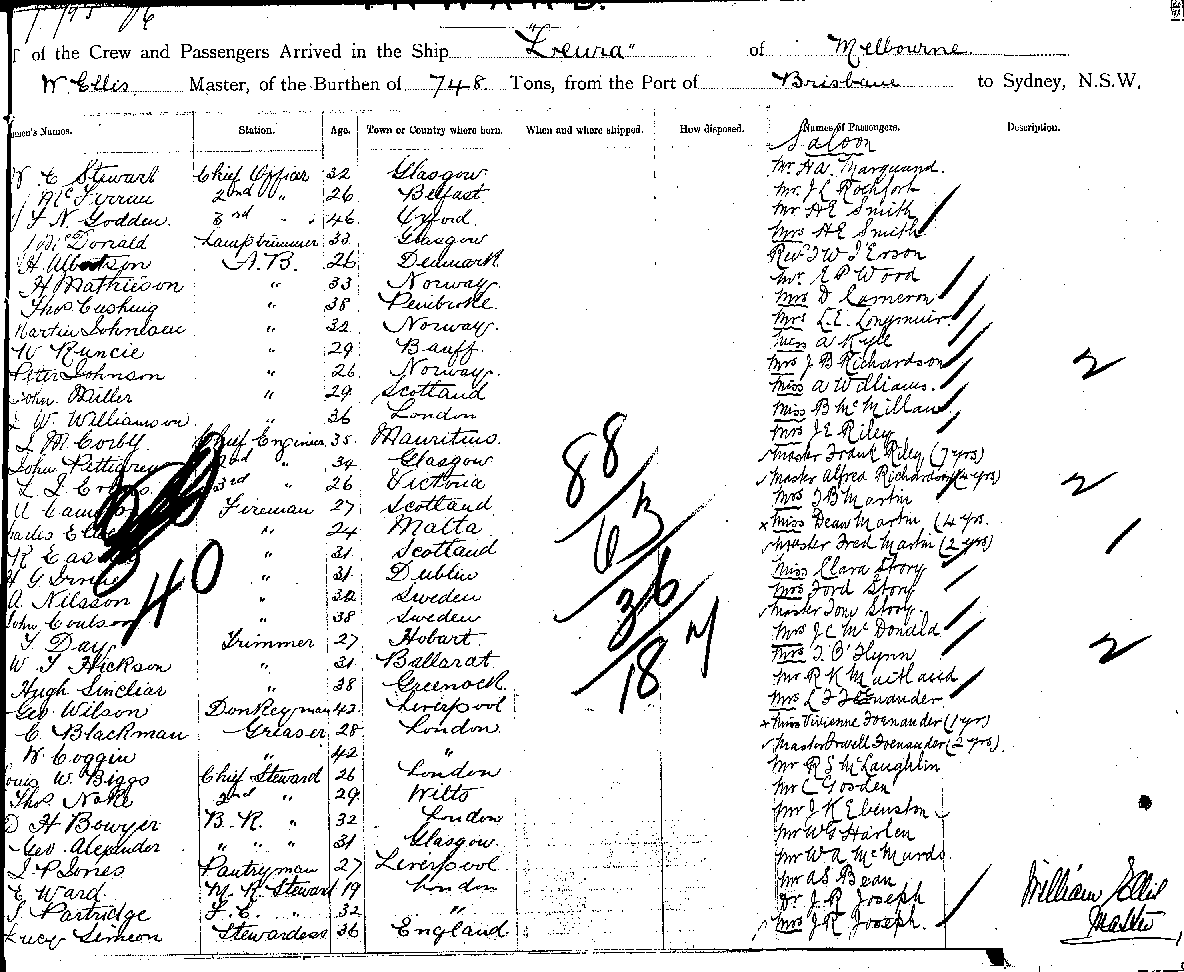 INWARD.
of the Crew and Passengers Arrived in the Ship "Leura" of Melbourne
W. Ellis Master, of the Burthen of 748 Tons, from the Port of Brisbane to Sydney, N.S.W.
Names. Station. Age. Town or Country where born. When and where shipped. How disposed. Names of Passengers. Description.
Saloon
C Stewart Chief Officer 32 Glasgow Mr. Ha. Marquand.
2nd " 26 Belfast Mr. J L Rochfort
N. Godden 3rd " 46 Oxford Mr HE Smith
McDonald Lamptrimmer 33 Glasgow Mrs HE Smith
H Albertson A.B. 26 Denmark Rev
H Mathieson " 33 Norway Mr. E P Wood
Thos Cushing " 38 Pembroke Mrs D Cameron
" 32 Norway Mrs L.E. Longmuir
W Runcie " 29 Banff a Kyle
Peter Johnson " 26 Norway Mrs J B Richardson 2
John Miller " 29 Scotland Miss a Williams.
W. Williamson " 36 London Miss B McMillan
M Corby Chief Engineer 38 Mauritius Mrs J.E. Riley
John Pettigrew 2nd " 34 Glasgow Master Frank Riley (7 yrs)
3rd " 26 Victoria Master Alfred Richardson 2
Fireman 27 Scotland Mrs J B Martin
" 24 Malta x Miss Dean Martin (4 yrs.
" 31 Scotland Master Fred Martin (2 yrs) 1
" 31 Dublin Miss Clara Story
A Nilsson " 32 Sweden Mrs Ford Story
John Coulson " 38 Sweden Master Tom Story
T Day Trimmer 27 Hobart Mrs J C McDonald
W. T Hickson " 31 Ballarat Mrs T. O'Flynn 2
Hugh Sincliar " 38 Greenock Mr R K Maitland
Geo Wilson Donkeyman 42 Liverpool Mrs L
C Blackman Greaser 28 London x Miss Vivienne Foenander (1 yr)
W Coggin " 42 " Foenander (2 yrs).
W Biggs Chief Steward 26 London Mr R S McLaughlin
Thos 2nd " 29 Wilts Mr C Gosden
H Bowyer B.R. " 32 London Mr J K Ebenston
Geo. Alexander " " " 31 Glasgow Mr W G Harlen
J P Jones Pantryman 27 Liverpool Mr Wa McMurdo
E Ward M. R. Steward 19 London Mr a S Bean
Partridge F.C. " 32 " Dr J R Joseph
Lucy Simeon Stewardess 36 England Mrs J R Joseph.
40
88
63
36
187
William Ellis
Master